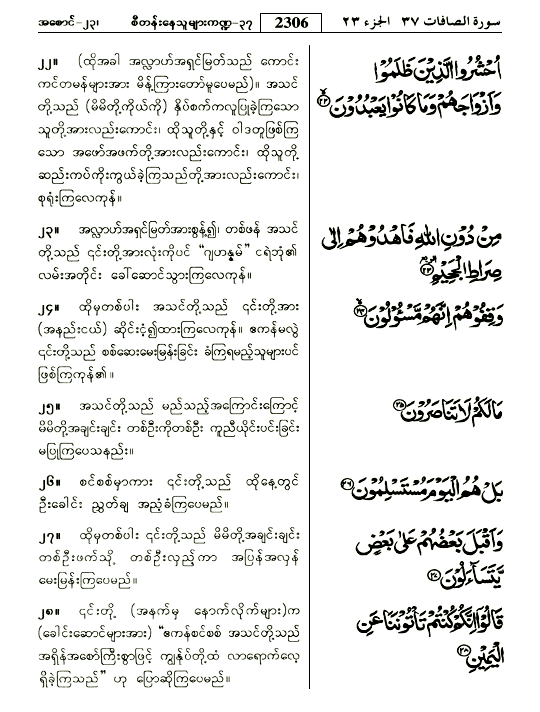 အစောင်-၂၃၊ စီတန်းနေသူများကဏ္ဍ-၃၇ 2306 سورة الصافات ٣٧ الجزء ٢٣
၂၂။ (ထိုအခါ အလ္လာဟ်အရှင်မြတ်သည် ကောင်း
ကင်တမန်များအား မိန့်ကြားတော်မူပေမည်)။ အသင်
တို့သည် (မိမိတို့ကိုယ်ကို) နှိပ်စက်ကလူပြုခဲ့ကြသော
သူတို့အားလည်းကောင်း၊ ထိုသူတို့နှင့် ဝါဒတူဖြစ်ကြ
သော အဖော်အဖက်တို့အားလည်းကောင်း၊ ထိုသူတို့
ဆည်းကပ်ကိုးကွယ်ခဲ့ကြသည်တို့အားလည်းကောင်း၊
စုရုံးကြလေကုန်။
اُحْشُرُوا الَّذِيْنَ ظَلَمُوْا
وَاَزْوَاجَهُمْ وَمَا كَانُوْا يَعْبُدُوْنَ ﴿٢٢﴾
၂၃။ အလ္လာဟ်အရှင်မြတ်အားစွန့်၍၊ တစ်ဖန် အသင်
တို့သည် ၎င်းတို့အားလုံးကိုပင် “ဂျဟန္နမ်” ငရဲဘုံ၏
လမ်းအတိုင်း ခေါ်ဆောင်သွားကြလေကုန်။
مِنْ دُوْنِ اللّٰهِ فَاهْدُوْهُمْ اِلٰى
صِرَاطِ الْجَحِيْمِ ﴿٢٣﴾
၂၄။ ထိုမှတစ်ပါး အသင်တို့သည် ၎င်းတို့အား
(အနည်းငယ်) ဆိုင်းငံ့၍ထားကြလေကုန်။ ဧကန်မလွဲ
၎င်းတို့သည် စစ်ဆေးမေးမြန်းခြင်း ခံကြရမည့်သူများပင်
ဖြစ်ကြကုန်၏။
وَقِفُوْهُمْ اِنَّهُمْ مَّسْـُٔوْلُوْنَ ﴿٢٤﴾
၂၅။ အသင်တို့သည် မည်သည့်အကြောင်းကြောင့်
မိမိတို့အချင်းချင်း တစ်ဦးကိုတစ်ဦး ကူညီယိုင်းပင်းခြင်း
မပြုကြပေသနည်း။
مَا لَكُمْ لَا تَنَاصَرُوْنَ ﴿٢٥﴾
၂၆။ စင်စစ်မှာကား ၎င်းတို့သည် ထိုနေ့တွင်
ဦးခေါင်း ညွှတ်ချ အညံ့ခံကြပေမည်။
بَلْ هُمُ الْيَوْمَ مُسْتَسْلِمُوْنَ ﴿٢٦﴾
၂၇။ ထိုမှတစ်ပါး ၎င်းတို့သည် မိမိတို့အချင်းချင်း
တစ်ဦးဖက်သို့ တစ်ဦးလှည့်ကာ အပြန်အလှန်
မေးမြန်းကြပေမည်။
وَاَقْبَلَ بَعْضُهُمْ عَلٰى بَعْضٍ
يَّتَسَآءَلُوْنَ ﴿٢٧﴾
၂၈။ ၎င်းတို့ (အနက်မှ နောက်လိုက်များ)က
(ခေါင်းဆောင်များအား) “ဧကန်စင်စစ် အသင်တို့သည်
အရှိန်အစော်ကြီးစွာဖြင့် ကျွန်ုပ်တို့ထံ လာရောက်လေ့
ရှိခဲ့ကြသည်” ဟု ပြောဆိုကြပေမည်။
قَالُوْٓا اِنَّكُمْ كُنْتُمْ تَاْتُوْنَنَا عَنِ
الْيَمِيْنِ ﴿٢٨﴾